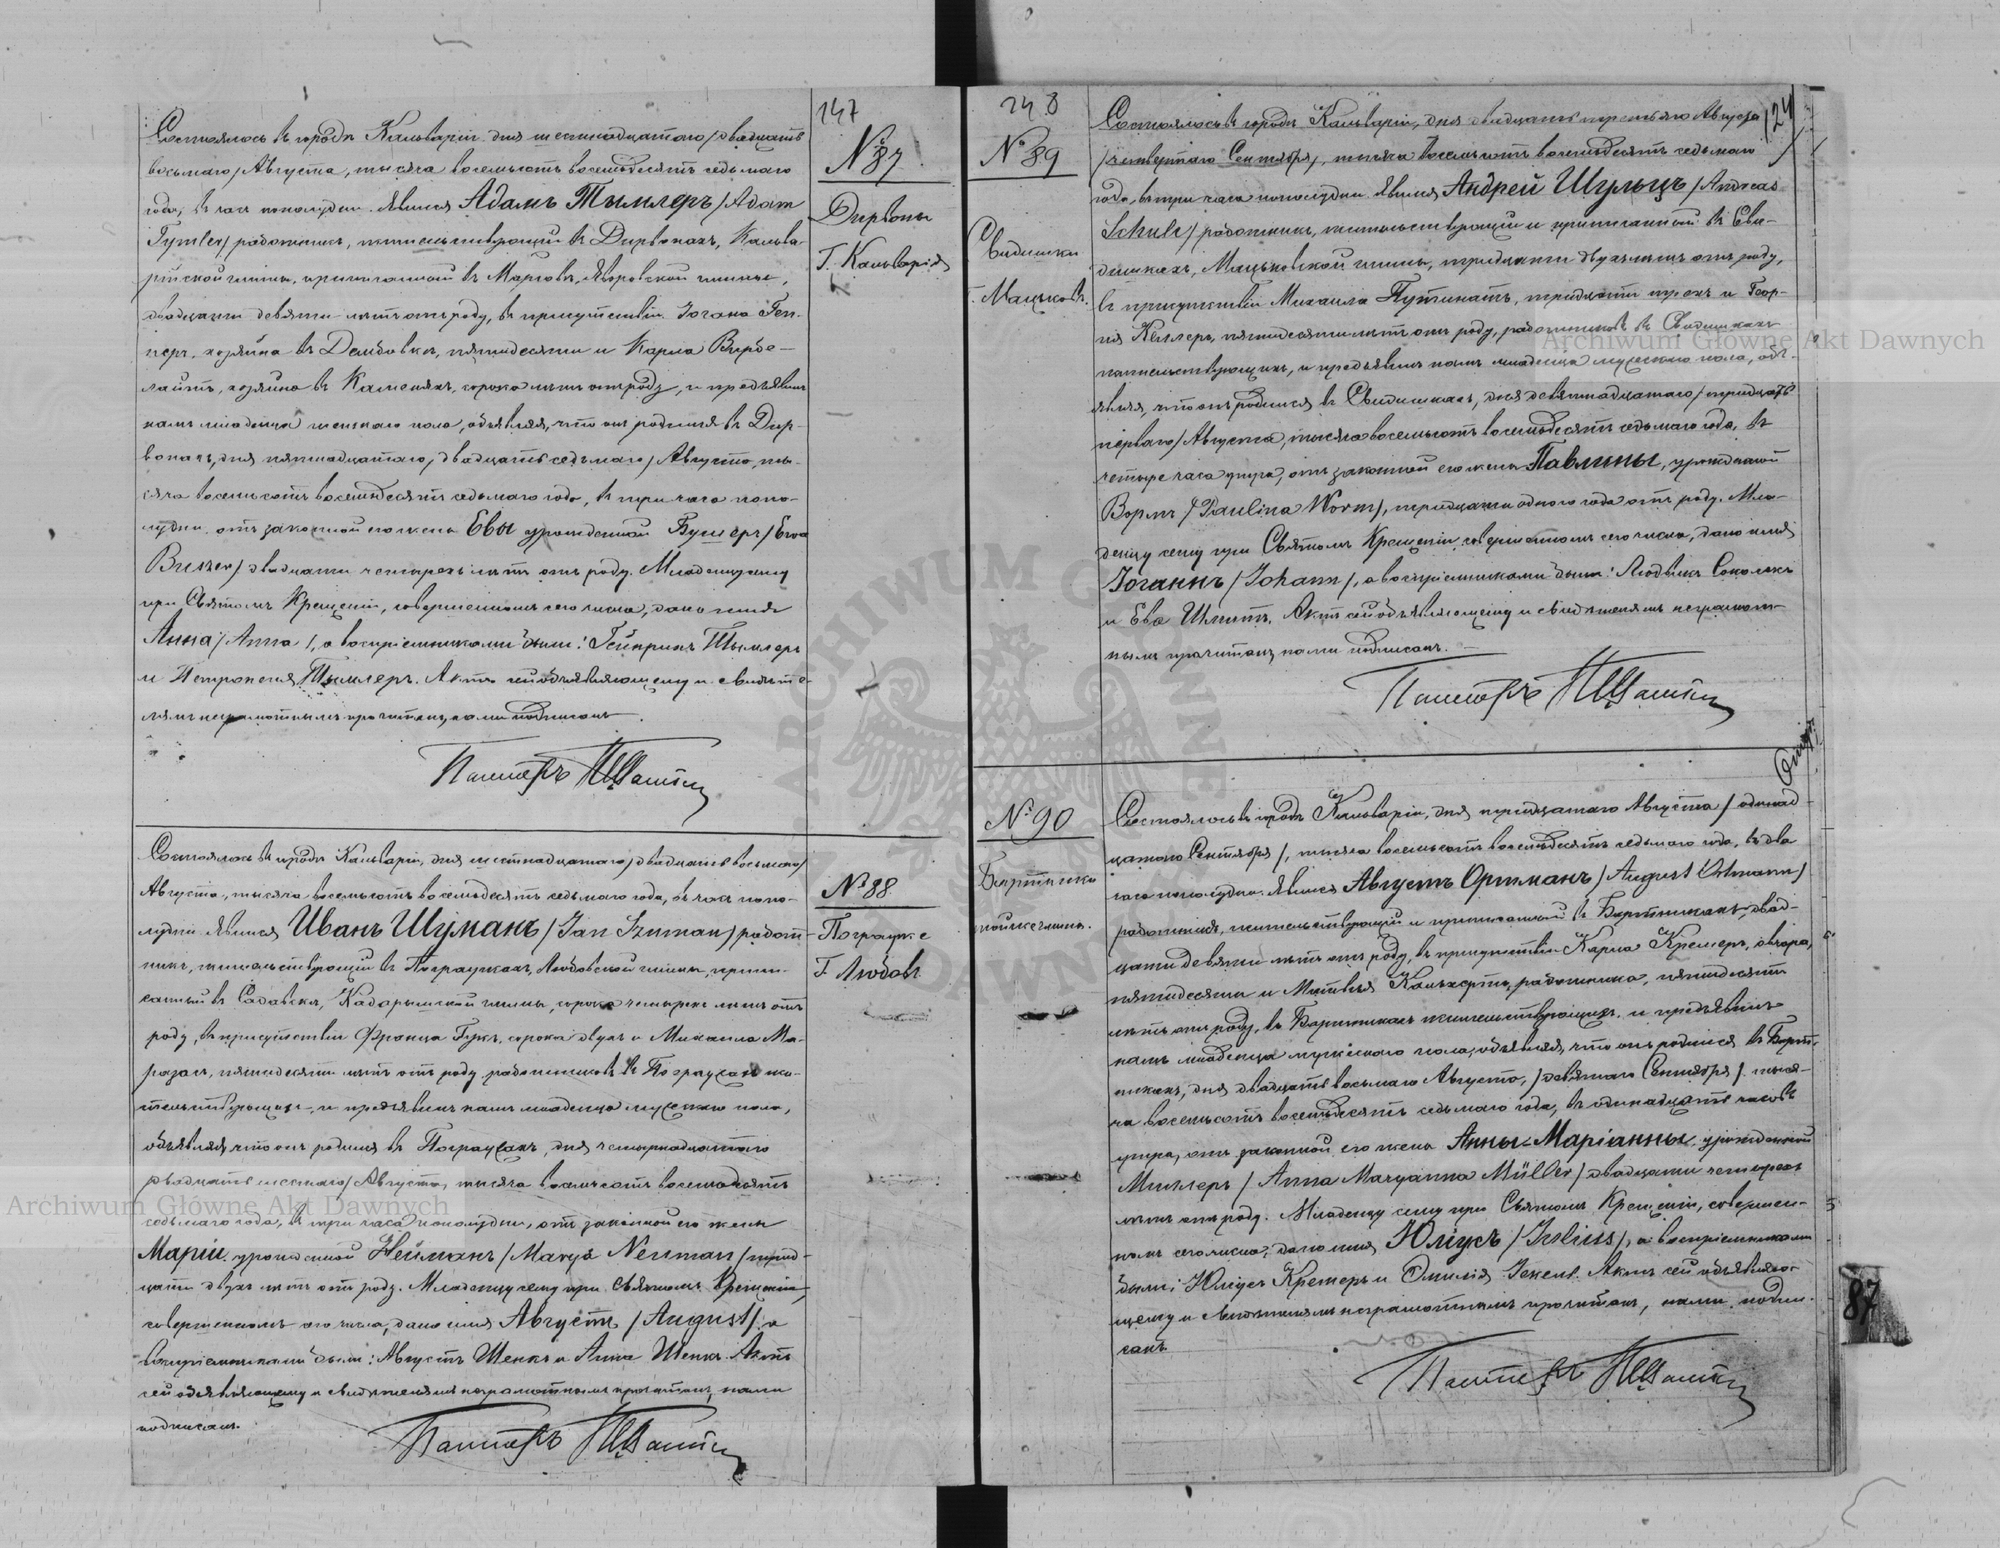 147
Состоялось въ городѣ Кальваріи дня шестнадцатаго /двадцать
восьмаго/ Августа, тысяча восемьсотъ восемьдесятъ седьмаго
года, въ часъ пополудни. Явился Адамъ Тымлеръ /Adam
Tymler/ работникъ, жительствующій въ Дирвонахъ, Кальва-
рійской гмины, приписанный въ Яворовской гмины,
двадцати девяти лѣтъ отъ роду, въ присутствіи Іогана Геп-
неръ, хозяина въ Дембовкѣ, пятидесяти и Карла Вирбе-
лайтъ, хозяина въ сорока лѣтъ отъ роду, и предъявилъ
намъ младенца женскаго пола, объявляя, что онъ родился въ Дир-
вонахъ, дня пятнадцатаго, /двадцать седьмаго/ Августа, ты-
сяча восемьсотъ восемьдесятъ седьмаго года, въ три часа попо-
лудни, отъ законной его жены Евы урожденной Бушеръ /Ewa
Buszer/ двадцати четырехъ лѣтъ отъ роду. Младенцу сему
при Святомъ Крещеніи, совершенномъ сего числа, дано имя
Анна /Anna/, а воспріемниками были: Гейнрихъ Тымлеръ
и Петронеля Тымлеръ. Актъ сей объявляющему и свидѣте-
лямъ неграмотнымъ прочитанъ, нами подписанъ.
Пасторъ
№ 87
Дирвоны
Г. Кальварія
Состоялось въ городѣ Кальваріи, дня шестнадцатаго /двадцать восьмаго/
Августа, тысяча восемьсотъ восемьдесятъ седьмаго года, въ часъ попо-
лудни. Явился Иванъ Шуманъ /Jan Szuman/ работ-
никъ, жительствующій въ Пограужахъ, Любовской гмины, припи-
санный въ Садавскѣ, Кадарышской гмины, сорока четырехъ лѣтъ отъ
роду, въ присутствіи Франца Гукъ, сорока двухъ и Михаила Ма-
разасъ, пятидесяти лѣтъ отъ роду, работниковъ въ жи-
тельствующихъ, и предъявилъ намъ младенца мужскаго пола,
объявляя, что онъ родился въ дня четырнадцатаго
/двадцать шестаго/ Августа, тысяча восемьсотъ восемьдесятъ
седьмаго года, въ три часа пополудни, отъ законной его жены
Маріи урожденной Нейманъ /Marya Neuman/ трид-
цати двухъ лѣтъ отъ роду. Младенцу сему при Святомъ Крещеніи,
совершенномъ сего числа, дано имя Августъ /August/, а
воспріемниками были: Августъ Шенкъ и Анна Шенкъ. Актъ
сей объявляющему и свидѣтелямъ неграмотнымъ прочитанъ, нами
подписанъ.
Пасторъ
№ 88
Г. Любовъ
248
№ 89
Свидишки
Г. Мацьковъ.
124
Состоялось въ городѣ Кальваріи, дня двадцать третьяго Августа
/четвертаго Сентября/, тысяча восемьсотъ восемьдесятъ седьмаго
года, въ три часа пополудни. Явился Андрей Шульцъ /Andreas
Schulz/ работникъ, жительствующій и приписанный въ Сви-
дишкахъ, Мацьковской гмины, тридцати двухъ лѣтъ отъ роду,
въ присутствіи Михаила Путинатъ, тридцати трехъ и Геор-
гія Келлеръ, пятидесяти лѣтъ отъ роду, работниковъ въ Свидишкахъ
жительствующихъ, и предъявилъ намъ младенца мужскаго пола, объ-
являя, что онъ родился въ Свидишкахъ, дня девятнадцатаго /тридцать
перваго/ Августа, тысяча восемьсотъ восемьдесятъ седьмаго года, въ
четыре часа утра, отъ законной его жены Павлины, урожденной
Вормъ /Paulina Worm/, тридцати одного года отъ роду. Мла-
денцу сему при Святомъ Крещеніи, совершенномъ сего числа, дано имя
Іоганнъ /Johann/, а воспріемниками были: Людвикъ Соколокъ
и Ева Шмитъ. Актъ сей объявляющему и свидѣтелямъ неграмот-
нымъ прочитанъ, нами подписанъ.
Пасторъ
№ 90
Состоялось въ городѣ Кальваріи, дня тридцатаго Августа /одинад-
цатаго Сентября/, тысяча восемьсотъ восемьдесятъ седьмаго года, въ два
часа пополудни. Явился Августъ Ортманъ /August Ortmann/
работникъ, жительствующій и приписанный въ Бартникахъ, двад-
цати девяти лѣтъ отъ роду, въ присутствіи Карла Кремеръ,
пятидесяти и Матвѣя работника, пятидесяти
лѣтъ отъ роду, въ Бартникахъ жительствующихъ, и предъявилъ
намъ младенца мужескаго пола, объявляя, что онъ родился въ Барт-
никахъ, дня двадцать восьмаго Августа, /девятаго Сентября/ тыся-
ча восемьсотъ восемьдесятъ седьмаго года, въ одинадцать часовъ
утра, отъ законной его жены Анны-Маріанны, урожденной
Миллеръ /Anna Maryanna Müller/ двадцати четырехъ
лѣтъ отъ роду. Младенцу сему при Святомъ Крещеніи, совершен-
номъ сего числа, дано имя Юліусъ /Julius/, а воспріемниками
были: Юліусъ Кремеръ и Эмилія Актъ сей объявляю-
щему и свидѣтелямъ неграмотнымъ прочитанъ, нами подпи-
санъ.
Пасторъ
87
Archiwum Główne Akt Dawnych
Archiwum Główne Akt Dawnych
ARCHIWUM GŁÓWNE